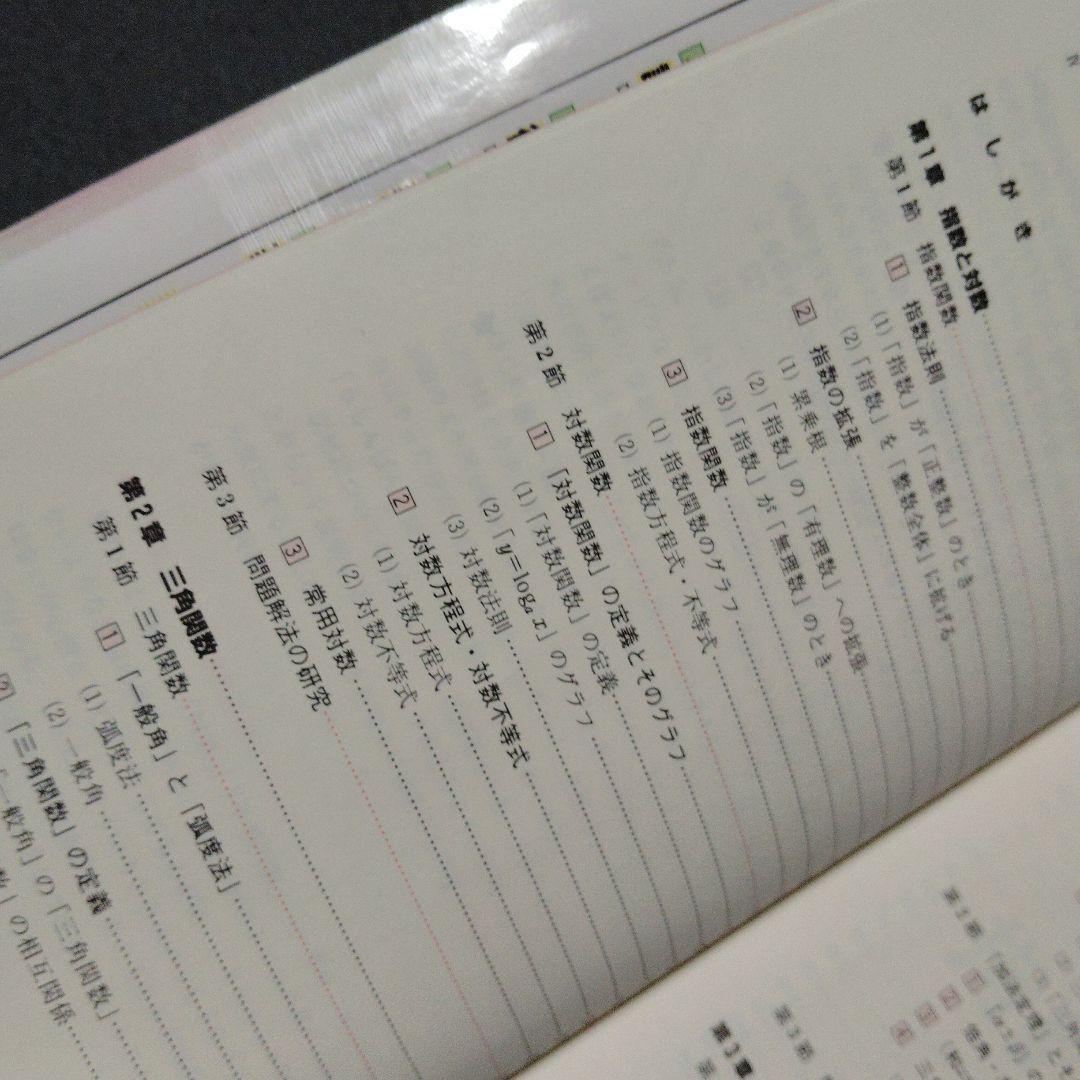 はしがき
第1章 指数と対数
第1節 指数関数
1 指数法則
(1)「指数」が「正整数」のとき
(2)「指数」を「整数全体」に拡げる
2 指数の拡張
(1) 累乗根
(2)「指数」の「有理数」への拡張
(3)「指数」が「無理数」のとき
3 指数関数
(1) 指数関数のグラフ
(2) 指数方程式・不等式
第2節 対数関数
1 「対数関数」の定義とそのグラフ
(1)「対数関数」の定義
(2)「y=logₐ x」のグラフ
(3) 対数法則
2 対数方程式・対数不等式
(1) 対数方程式
(2) 対数不等式
3 常用対数
第3節 問題解法の研究
第2章 三角関数
第1節 三角関数
1 「一般角」と「弧度法」
(1) 弧度法
(2) 一般角
2 「三角関数」の定義
「一般角」の「三角関数」
数」の相互関係
第3節
第3章